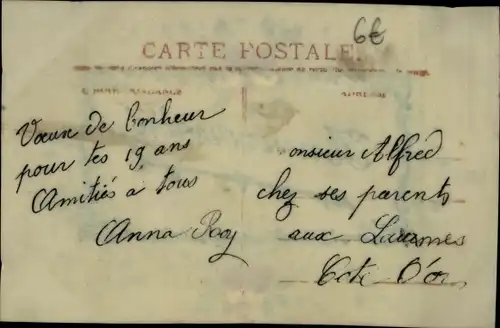 6€
CARTE POSTALE.
ADRESSE
Vœux de bonheur
pour tes 19 ans
Amitiés à tous
Anna
onsieur Alfred
chez ses parents
aux Laumes
Cote D'or